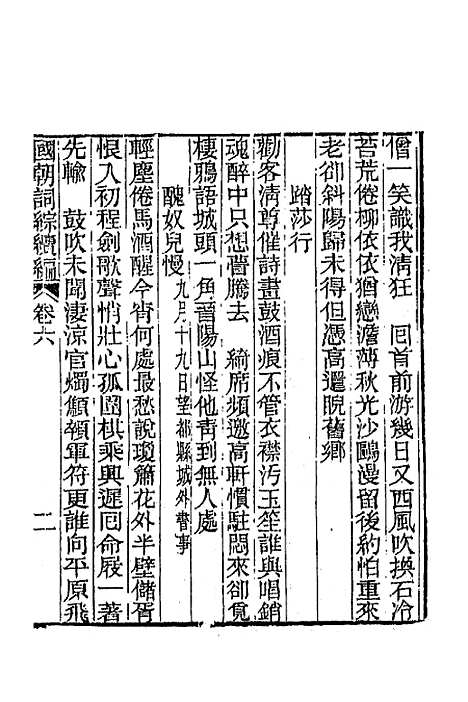 僧一笑識我淸狂　囘首前游幾日又西風吹換石冷
苔荒倦柳依依猶戀澹薄秋光沙鷗漫留後約怕重來
老卻斜陽歸未得但憑高遥睨舊鄉
踏莎行
勸客淸尊催詩畫鼓酒痕不管衣襟汚玉笙誰與唱銷
魂醉中只想瞢騰去　綺席頻邀高軒慣駐悶來卻覓
棲鴉語城頭一角晉陽山怪他靑到無人處
醜奴兒慢 九月十九日望都縣城外書事
輕塵倦馬酒醒今宵何處最愁說瓊簫花外半壁儲胥
恨入初程劍歌聲悄壯心孤圍棋乘興遲囘命屐一著
先輸　鼓吹未聞淒涼官燭顦顇軍符更誰向平原飛
國朝詞綜續編 卷六 二